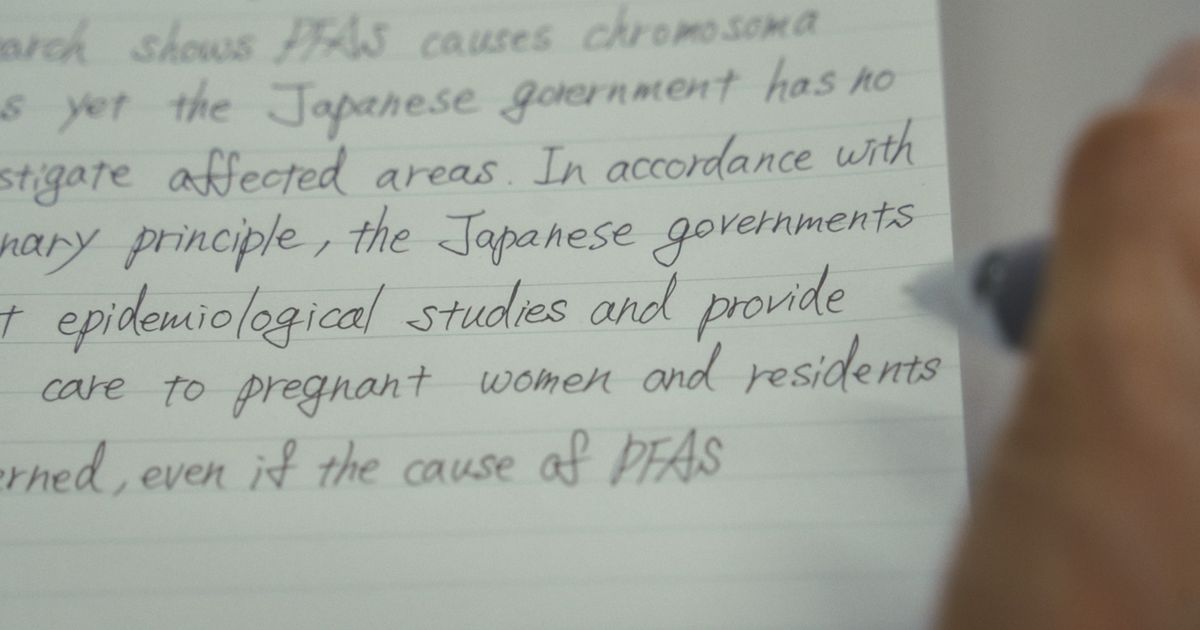 arch shows PFAS causes chromosoma
s yet the Japanese government has no
stigate affected areas. In accordance with
nary principle, the Japanese governments
t epidemiological studies and provide
care to pregnant women and residents
erned, even if the cause of PFAS